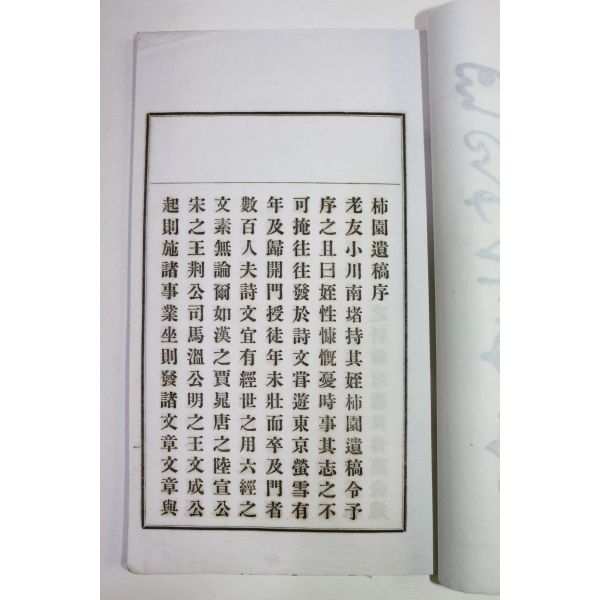 柿園遺稿序
老友小川南堵持其姪柿園遺稿令予
序之且曰姪性慷慨憂時事其志之不
可掩往往發於詩文嘗遊東京螢雪有
年及歸開門授徒年未壯而卒及門者
數百人夫詩文宜有經世之用六經之
文素無論爾如漢之賈晁唐之陸宣公
宋之王荆公司馬溫公明之王文成公
起則施諸事業坐則發諸文章文章與